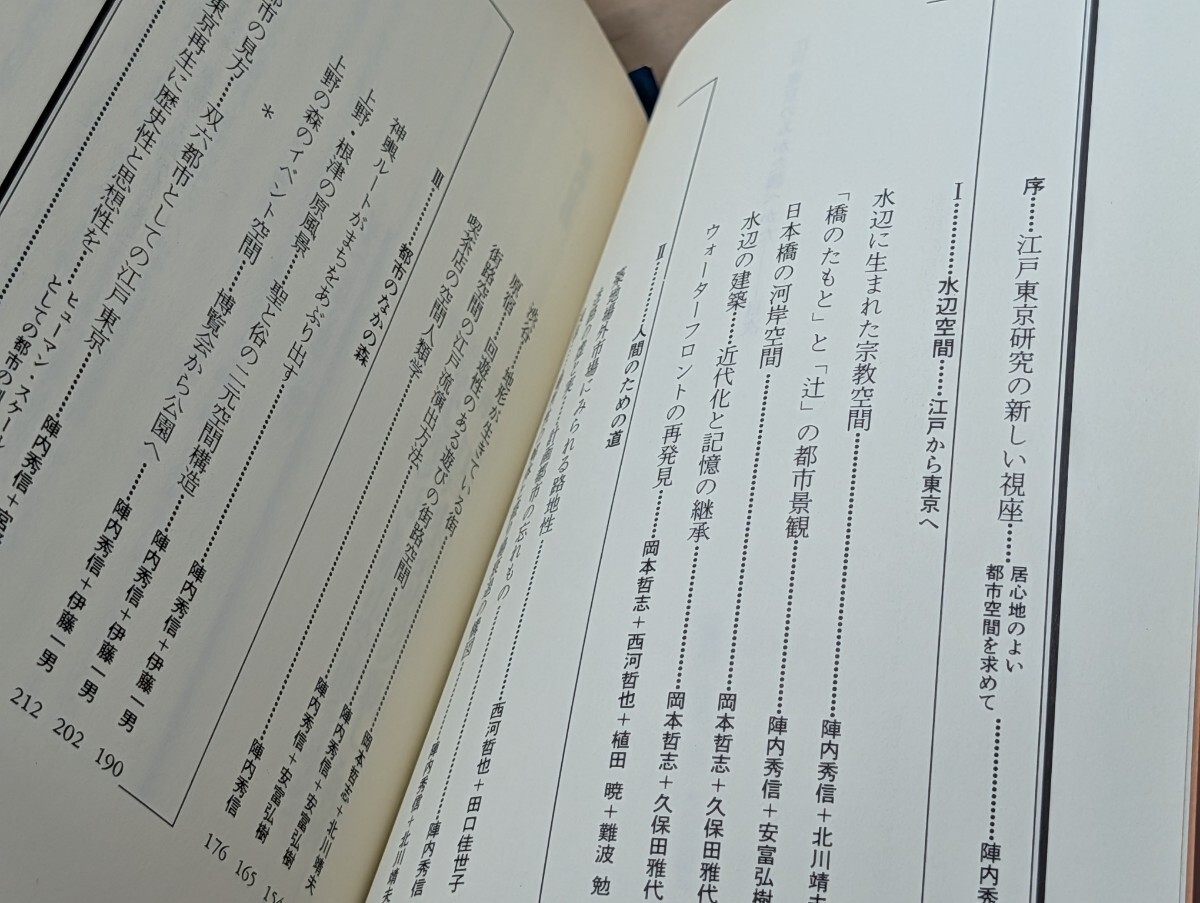 序……江戸東京研究の新しい視座……居心地のよい
都市空間を求めて……陣内秀
I……水辺空間……江戸から東京へ
水辺に生まれた宗教空間……陣内秀信+北川靖夫
「橋のたもと」と「辻」の都市景観……陣内秀信+安富弘樹
日本橋の河岸空間……岡本哲志+久保田雅代
水辺の建築……近代化と記憶の継承……岡本哲志+久保田雅代
ウォーターフロントの再発見……岡本哲志+西河哲也+植田 暁+難波 勉
II……人間のための道
築地場外市場にみられる路地性……西河哲也+田口佳世子
の忘れもの……陣内秀信
陣内秀信+北川靖夫
渋谷……地形が生きている街……岡本哲志+北川靖夫
原宿……回遊性のある遊びの街路空間……陣内秀信+安富弘樹
街路空間の江戸流演出方法……陣内秀信+安富弘樹
喫茶店の空間人類学……陣内秀信
176 165 15
III……都市のなかの森
神輿ルートがまちをあぶり出す……陣内秀信+伊藤一男 190
上野・根津の原風景……聖と俗の二元空間構造……陣内秀信+伊藤一男 202
上野の森のイベント空間……博覧会から公園へ……陣内秀信+伊藤一男 212
*
市の見方……双六都市としての江戸東京……陣内秀信+宮
東京再生に歴史性と思想性を……ヒューマン・スケール
としての都市の